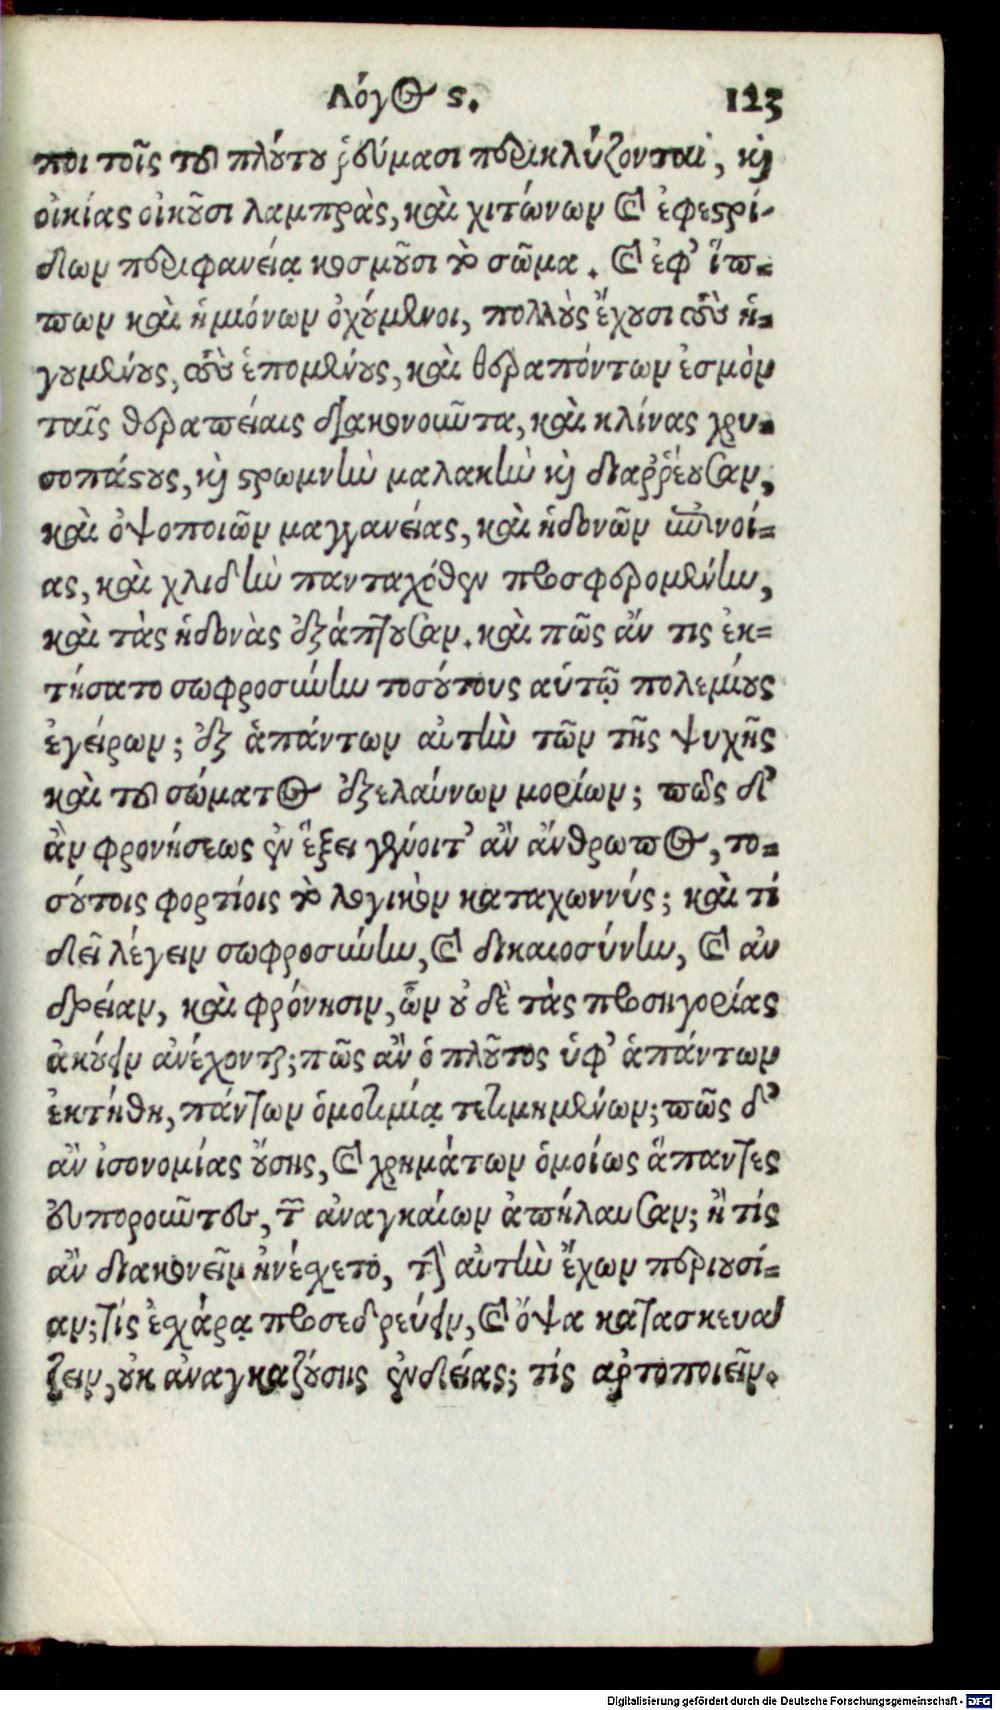 Λόγος ϛ. 123
ποι τοῖς τοῦ πλούτου ῥεύμασι περικλύζονται, καὶ
οἰκίας οἰκοῦσι λαμπρὰς, καὶ χιτώνων καὶ ἐφεστρί-
δων περιφανείᾳ κοσμοῦσι τὸ σῶμα. καὶ ἐφ' ἵπ-
πων καὶ ἡμιόνων ὀχούμενοι, πολλοὺς ἔχουσι τοὺς ἡ-
γουμένους, τοὺς ἑπομένους, καὶ θεραπόντων ἐσμὸν
ταῖς θεραπείαις διακονοῦντα, καὶ κλίνας χρυ-
σοπάστους, καὶ στρωμνὴν μαλακὴν καὶ διαῤῥέουσαν,
καὶ ὀψοποιῶν μαγγανείας, καὶ ἡδονῶν ἐπινοί-
ας, καὶ χλιδὴν πανταχόθεν προσφερομένην,
καὶ τὰς ἡδονὰς ἐξάπτουσαν. καὶ πῶς ἄν τις ἐκ-
τήσατο σωφροσύνην τοσούτους αὑτῷ πολεμίους
ἐγείρων; ἐξ ἁπάντων αὐτὴν τῶν τῆς ψυχῆς
καὶ τοῦ σώματος ἐξελαύνων μορίων; πῶς δ'
ἂν φρονήσεως ἐν ἕξει γένοιτ' ἂν ἄνθρωπος, το-
σούτοις φορτίοις τὸ λογικὸν καταχωννύς; καὶ τί
δεῖ λέγειν σωφροσύνην, καὶ δικαιοσύνην, καὶ ἀν
δρείαν, καὶ φρόνησιν, ὧν οὐ δὲ τὰς προσηγορίας
ἀκούειν ἀνέχονται; πῶς ἂν ὁ πλοῦτος ὑφ' ἁπάντων
ἐκτήθη, πάντων ὁμοτιμίᾳ τετιμημένων; πῶς δ'
ἂν ἰσονομίας οὔσης, καὶ χρημάτων ὁμοίως ἅπαντες
εὐποροῦντες, τῶν ἀναγκαίων ἀπήλαυσαν; ἢ τίς
ἂν διακονεῖν ἠνέσχετο, τὴν αὐτὴν ἔχων περιουσί-
αν; τίς ἐσχάρᾳ προσεδρεύειν, καὶ ὄψα κατασκευά
ζειν, οὐκ ἀναγκαζούσης ἐνδείας; τίς ἀρτοποιεῖν.
Digitalisierung gefördert durch die Deutsche Forschungsgemeinschaft - DFG